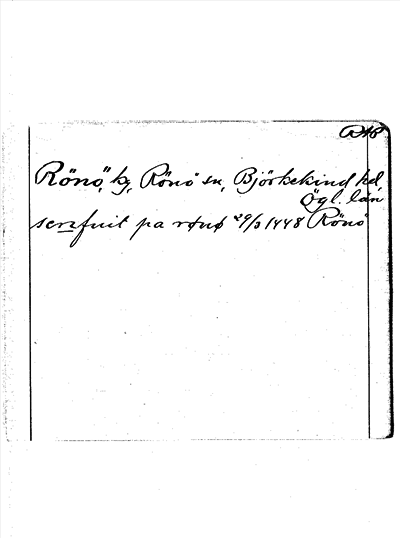 Rönö, hg, Rönö sn, Björkekind hd,
Ögl. län
scrxfuit pa rønø 29/3 1448 Rönö